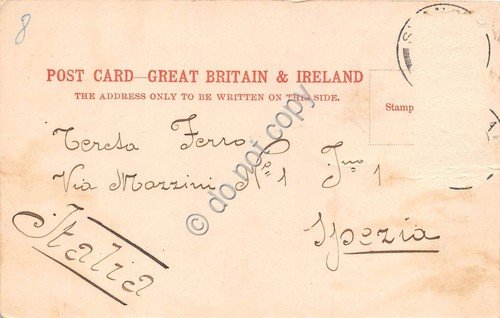 8
POST CARD—GREAT BRITAIN & IRELAND
THE ADDRESS ONLY TO BE WRITTEN ON THIS SIDE.
Stamp
Tereta Ferro
Via Mazzini Nº 1 Inº 1
Spezia
Italia
© do not copy